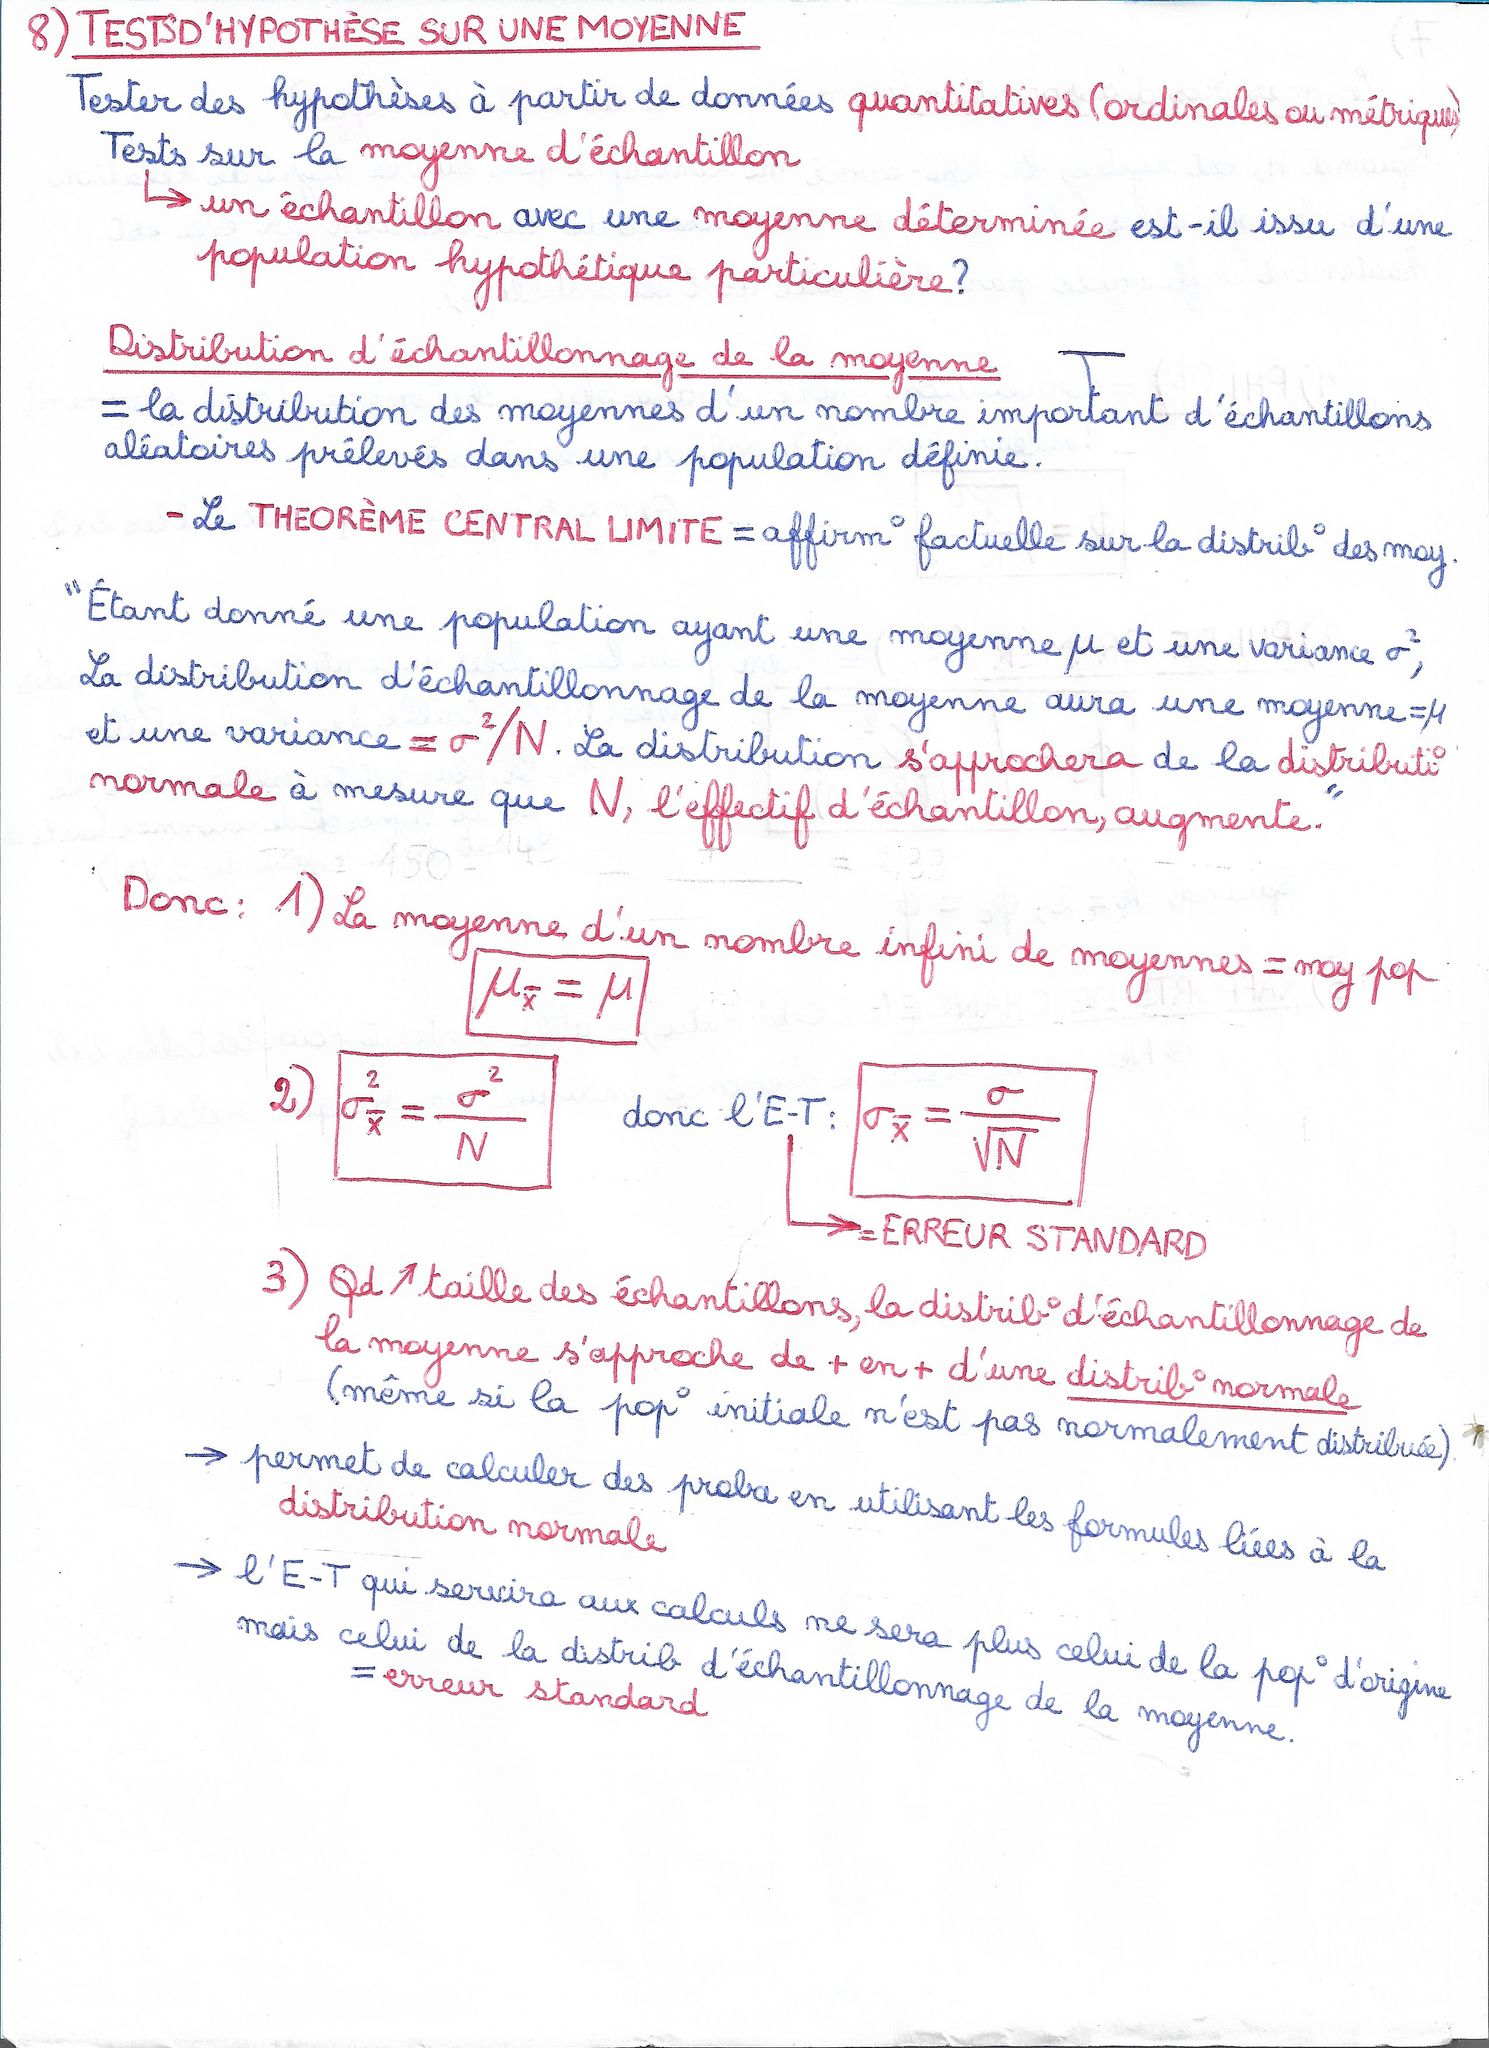 8) TESTS D'HYPOTHÈSE SUR UNE MOYENNE
Tester des hypothèses à partir de données quantitatives (ordinales ou métriques)
Tests sur la moyenne d'échantillon
↳ un échantillon avec une moyenne déterminée est-il issu d'une
population hypothétique particulière?
Distribution d'échantillonnage de la moyenne
= la distribution des moyennes d'un nombre important d'échantillons
aléatoires prélevés dans une population définie.
- Le THEORÈME CENTRAL LIMITE = affirm° factuelle sur la distrib° des moy.
"Étant donné une population ayant une moyenne μ et une variance σ²,
La distribution d'échantillonnage de la moyenne aura une moyenne = μ
et une variance = σ²/N. La distribution s'approchera de la distributi°
normale à mesure que N, l'effectif d'échantillon, augmente."
Donc: 1) La moyenne d'un nombre infini de moyennes = moy pop
μx̄ = μ
2) σ²x̄ = σ²/N donc l'E-T: σx̄ = σ/√N
= ERREUR STANDARD
3) Qd ↗ taille des échantillons, la distrib° d'échantillonnage de
la moyenne s'approche de + en + d'une distrib° normale
(même si la pop° initiale n'est pas normalement distribuée)
→ permet de calculer des proba en utilisant les formules liées à la
distribution normale
→ l'E-T qui servira aux calculs ne sera plus celui de la pop° d'origine
mais celui de la distrib d'échantillonnage de la moyenne.
= erreur standard